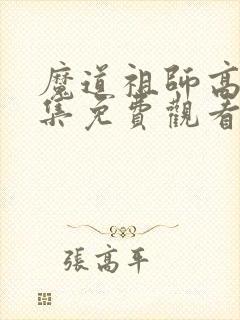 魔道祖師高
集免費觀看
張高平